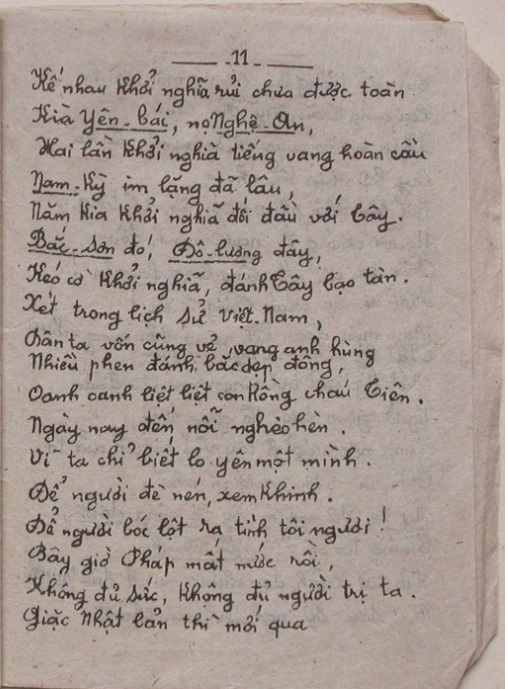 11
Kế nhau khởi nghĩa rủi chưa được toàn
Kià Yên-bái, nọ Nghệ-An,
Hai lần khởi nghiã tiếng vang hoàn cầu
Nam-Kỳ im lặng đã lâu,
Năm kia khởi nghiã đối đầu với Tây.
Bắc-Sơn đó, Đô-lương đây,
Kéo cờ khởi nghiã, đánh Tây bạo tàn.
Xét trong lịch sử Việt-Nam,
Dân ta vốn cũng vẻ vang anh hùng
Nhiều phen đánh bắc dẹp đông,
Oanh oanh liệt liệt con Rồng cháu Tiên.
Ngày nay đến nỗi nghèo hèn.
Vì ta chỉ biết lo yên một mình.
Để người đè nén, xem khinh.
Để người bóc lột ra tình tôi người!
Bây giờ Pháp mất nước rồi,
Không đủ sức, không đủ người trị ta.
Giặc Nhật bản thì mới qua